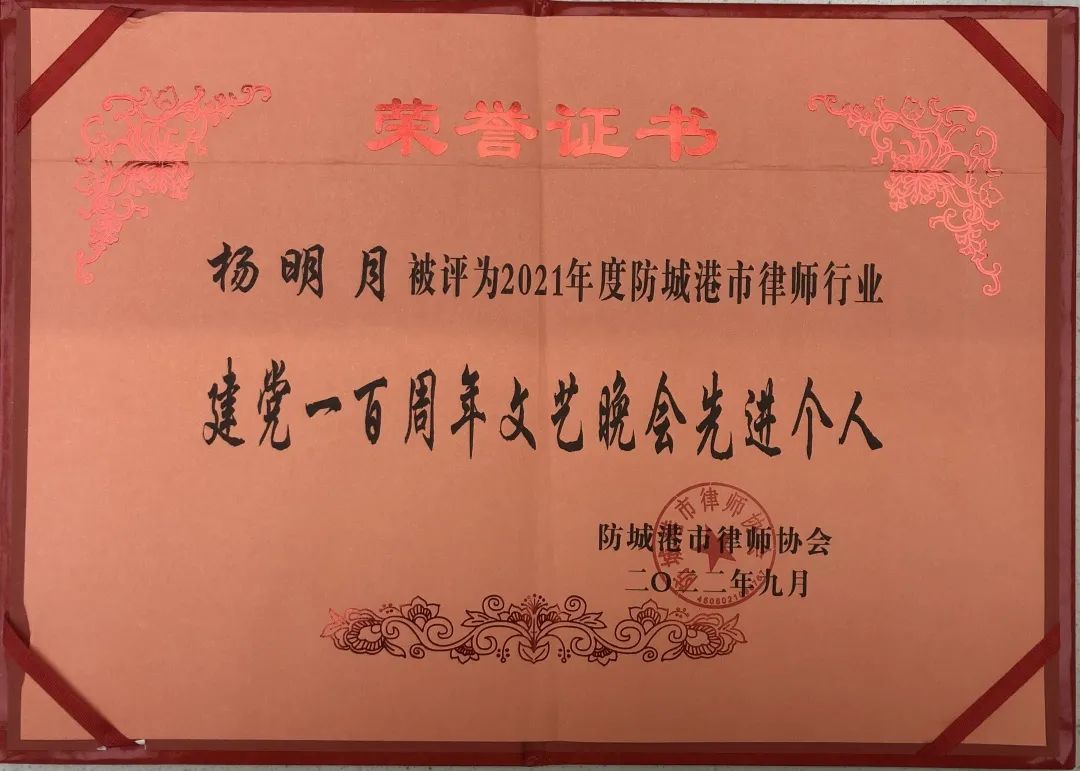 荣誉证书
杨明月被评为2021年度防城港市律师行业
建党一百周年文艺晚会先进个人
防城港市律师协会
二〇二二年九月